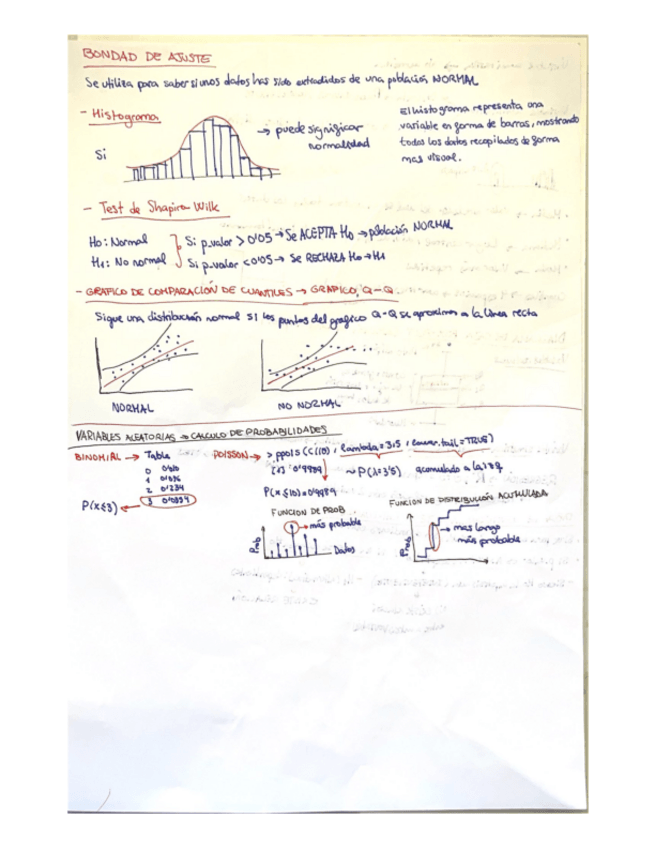 BONDAD DE AJUSTE
Se utiliza para saber si unos datos has sido extraidos de una población NORMAL
- Histograma
Si
→ puede significar
normalidad
El histograma representa una
variable en forma de barras, mostrando
todos los datos recopilados de forma
mas visual.
- Test de Shapiro Wilk
Ho: Normal
H1: No normal
Si p.valor > 0'05 → Se ACEPTA Ho → población NORMAL
Si p.valor < 0'05 → Se RECHAZA Ho → H1
- GRAFICO DE COMPARACIÓN DE CUANTILES → GRAFICO Q-Q
Sigue una distribución normal SI los puntos del grafico Q-Q se aproximan a la linea recta
NORMAL
NO NORMAL
VARIABLES ALEATORIAS → CALCULO DE PROBABILIDADES
BINOMIAL → Tabla
0
1
2 0'1234
3
P(X≤3) ←
POISSON → > ppois(c(10), lambda=3.5, lower.tail=TRUE)
[1] 0'9989
~ P(λ=3'5) acumulado a la izq.
P(X≤10)=0'9989
FUNCION DE PROB
más probable
Prob
Datos
FUNCION DE DISTRIBUCIÓN ACUMULADA
mas largo
más probable
Prob